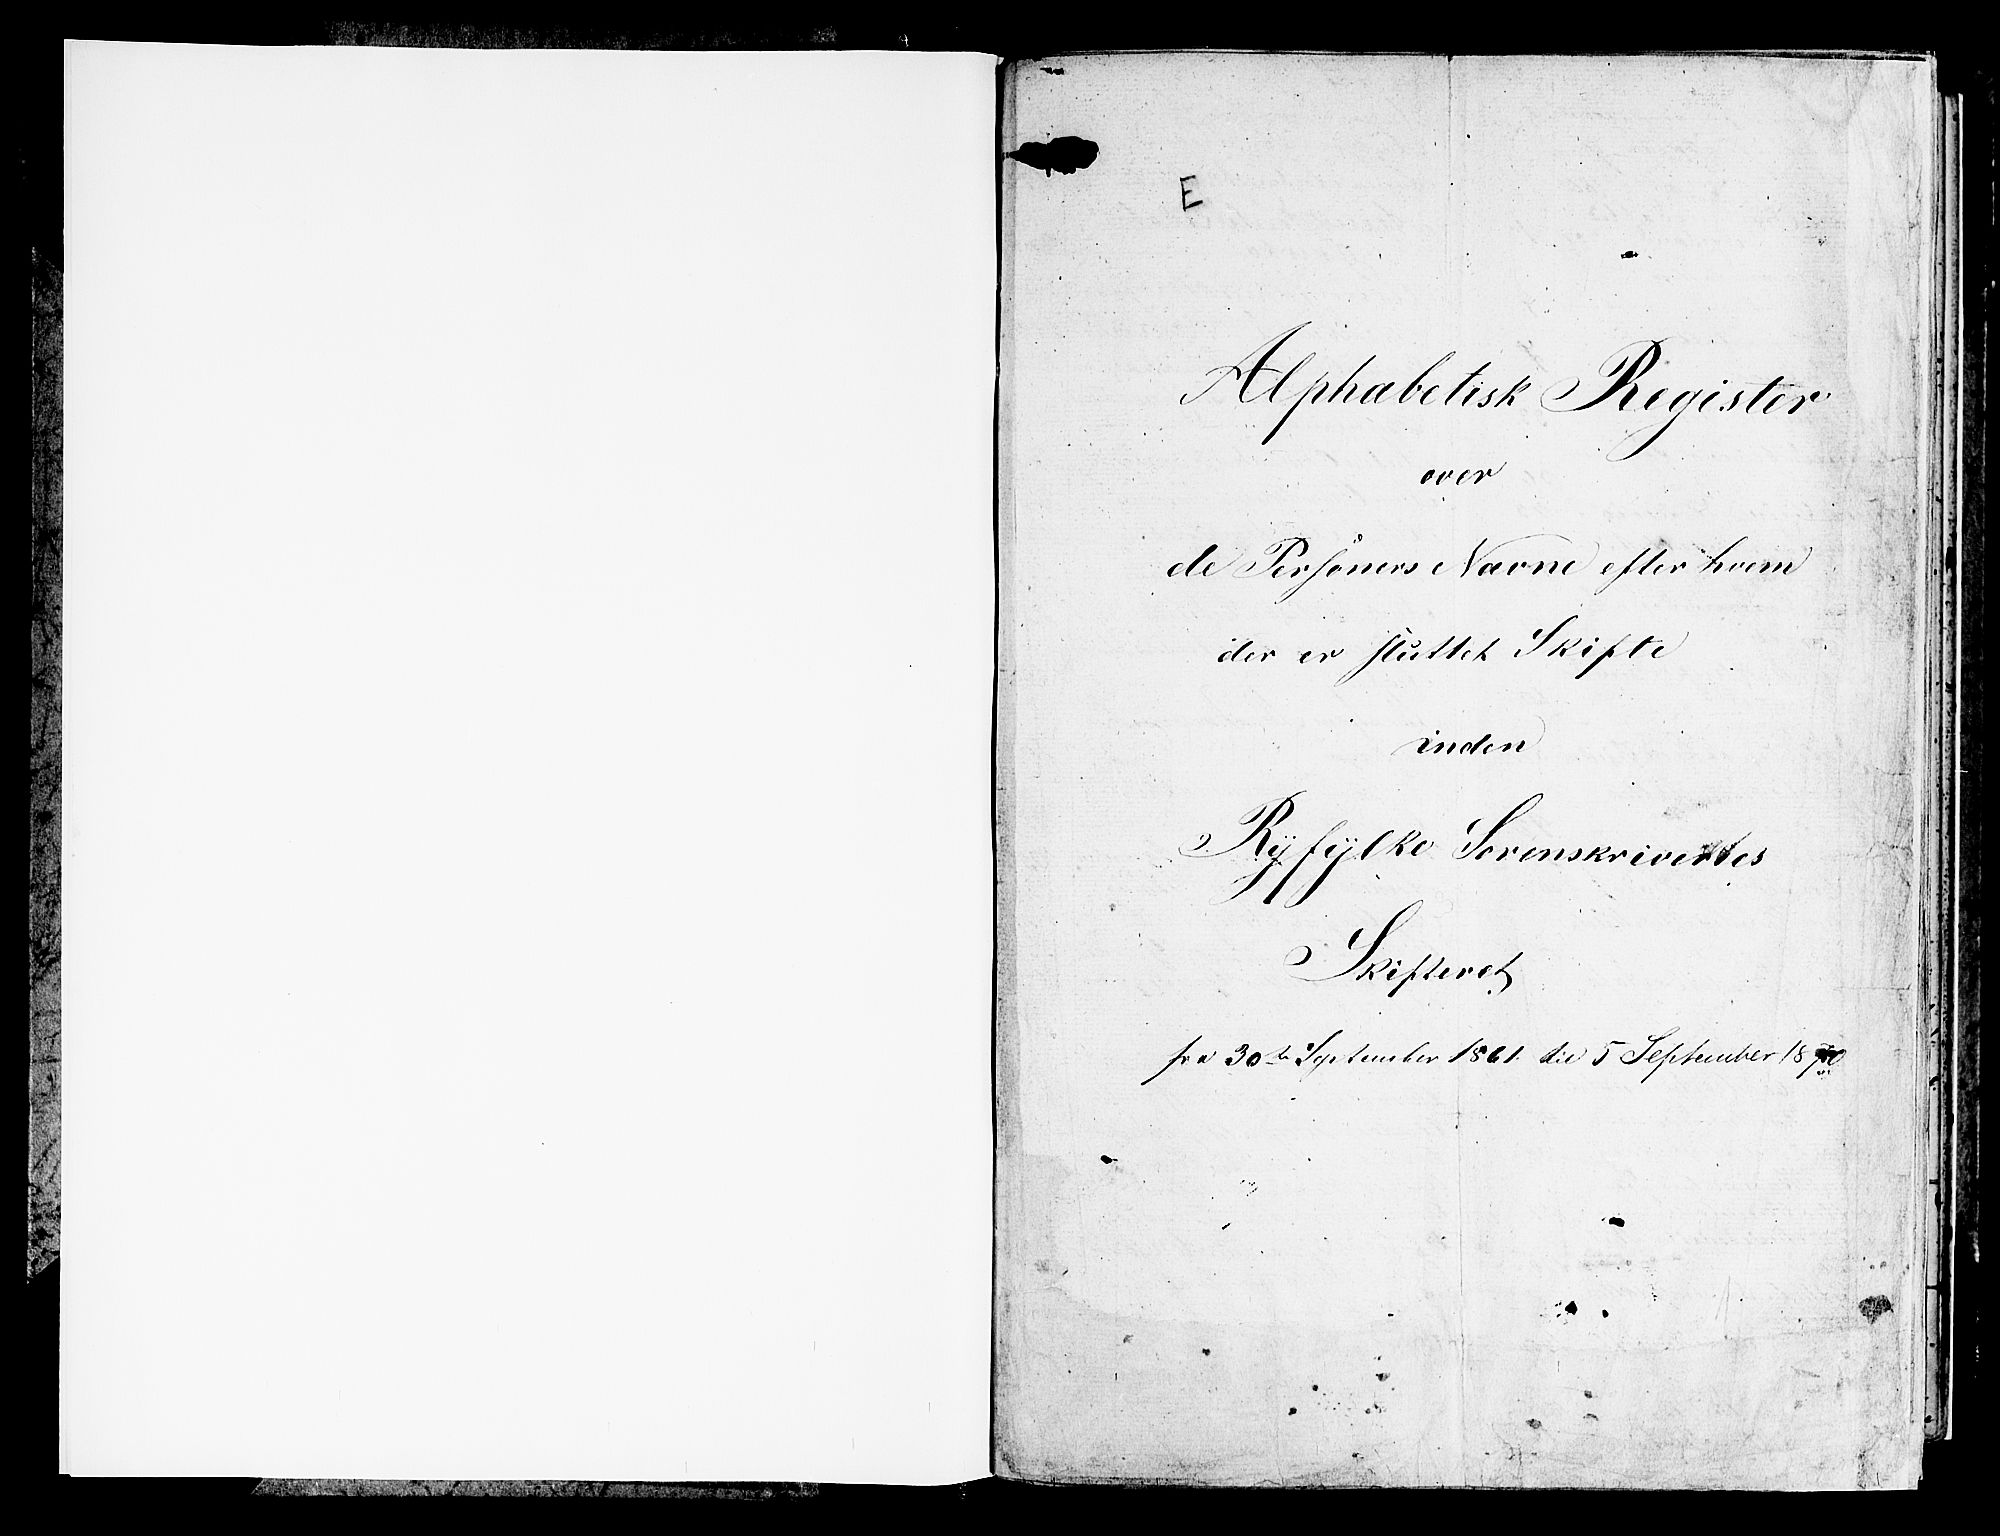 E
Alphabetisk Register
over
de Personers Navne efter hvem
der er sluttet Skifte
inden
Ryfylke Sorenskriveries
Skifteret
fra 30te September 1861 til 5 September 1870